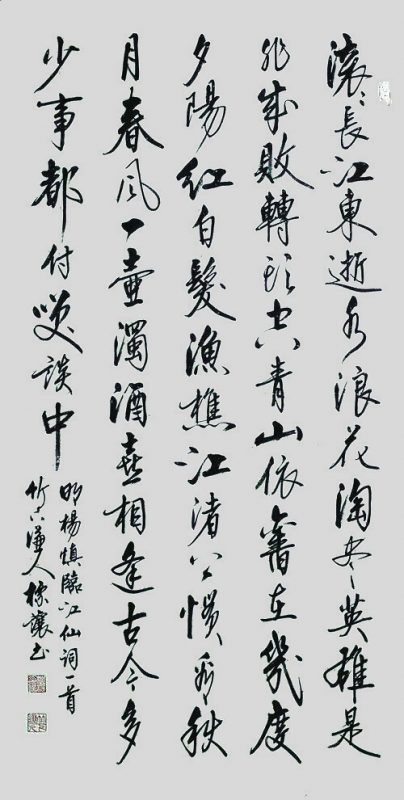 滾々長江東逝水浪花淘盡英雄是
非成敗轉頭空青山依舊在幾度
夕陽紅白髮漁樵江渚上慣看秋
月春風一壺濁酒喜相逢古今多
少事都付笑談中
明楊慎臨江仙詞一首
竹人書